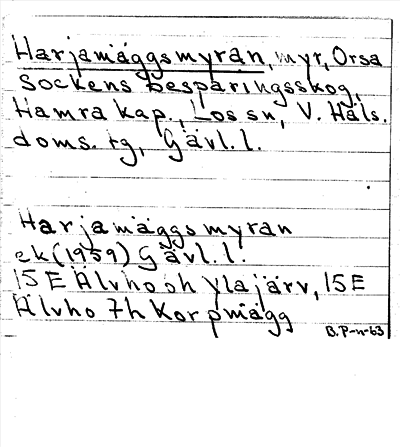 Harjamäggsmyran, myr, Orsa
Sockens besparingsskog,
Hamra kap., Los sn, V. Häls.
doms. tg, Gävl. l.
Harjamäggsmyran
ek (1959) Gävl. l.
15E Älvho oh Ylajärv, 15E
Älvho 7h Korpmägg
B. P-n-63